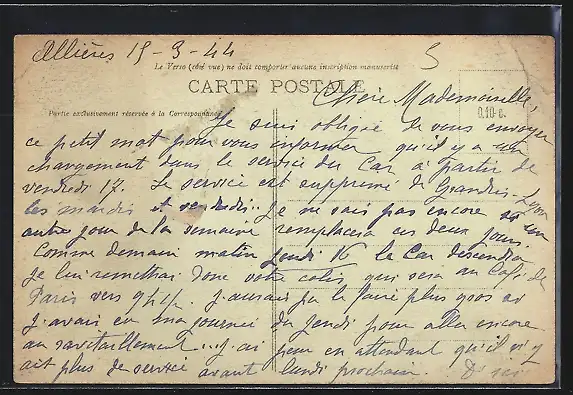 Allières 15-3-44
5
Le Verso (côté vue) ne doit comporter aucune inscription manuscrite
CARTE POSTALE
Chère Mademoiselle,
Partie exclusivement réservée à la Correspondance
0.10 c.
Je suis obligée de vous envoyer
ce petit mot pour vous informer qu'il y a un
chargement dans le service du Car à partir de
vendredi 17. Le service est supprimé de Grandris-Lyon
les mardis et vendredis. Je ne sais pas encore si un
autre jour de la semaine remplacera ces deux jours.
Comme demain matin jeudi 16 le Car descendra
je lui remettrai donc votre colis qui sera au Café de
Paris vers 9h1/2. J'aurais pu le faire plus gros si
j'avais eu ma journée du jeudi pour aller encore
au ravitaillement... j'ai peur en attendant qu'il n'y
ait plus de service avant lundi prochain.